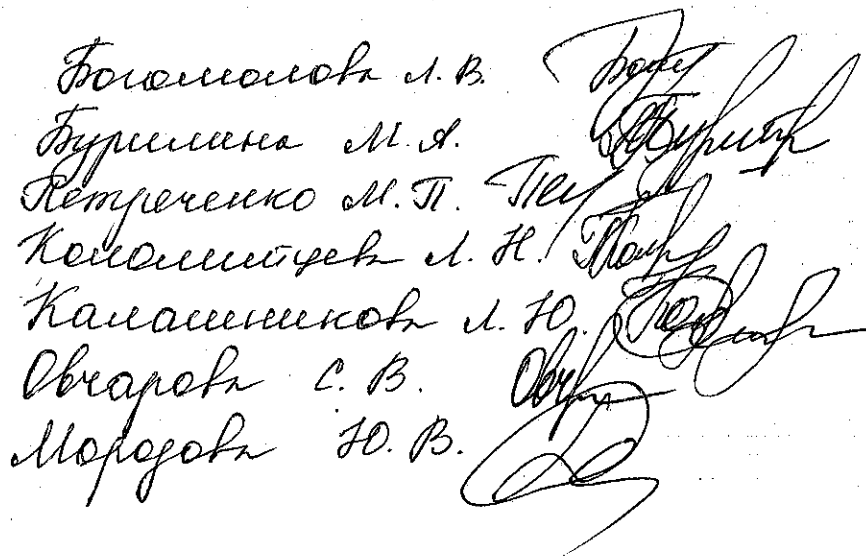 Богомолова Л. В.
Бурилина М. А.
Петреченко М. П.
Коломийцева Л. Н.
Калашникова Л. Ю.
Овчарова С. В.
Морозова Ю. В.